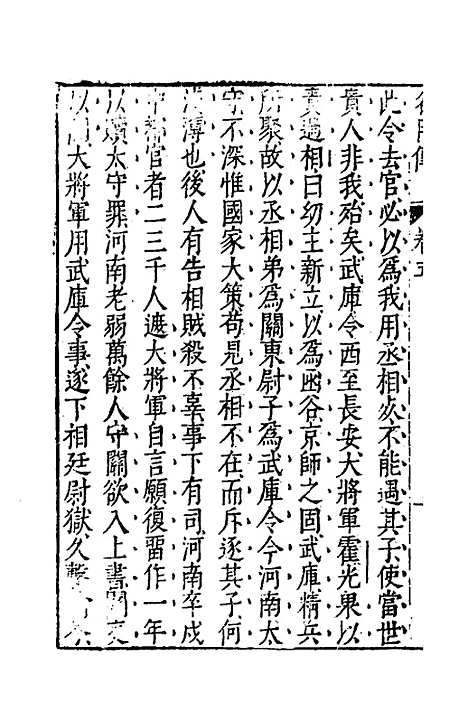 卷五
此令去官必以為我用丞相死不能遇其子使當世
貴人非我殆矣武庫令西至長安大將軍霍光果以
責過相曰幼主新立以為函谷京師之固武庫精兵
所聚故以丞相弟為關東尉子為武庫令今河南太
守不深惟國家大策苟見丞相不在而斥逐其子何
淺薄也後人有告相賊殺不辜事下有司河南卒戍
中都官者二三千人遮大將軍自言願復畱作一年
以贖太守罪河南老弱萬餘人守關欲入上書關吏
以聞大將軍用武庫令事遂下相廷尉獄久繫